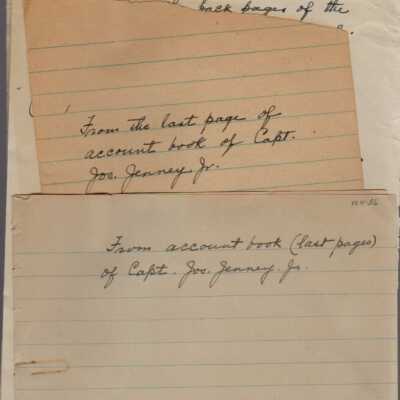 back pages of the
From the last page of
account book of Capt.
Jos. Jenney Jr.
From account book (last pages)
of Capt. Jos. Jenney. Jr.